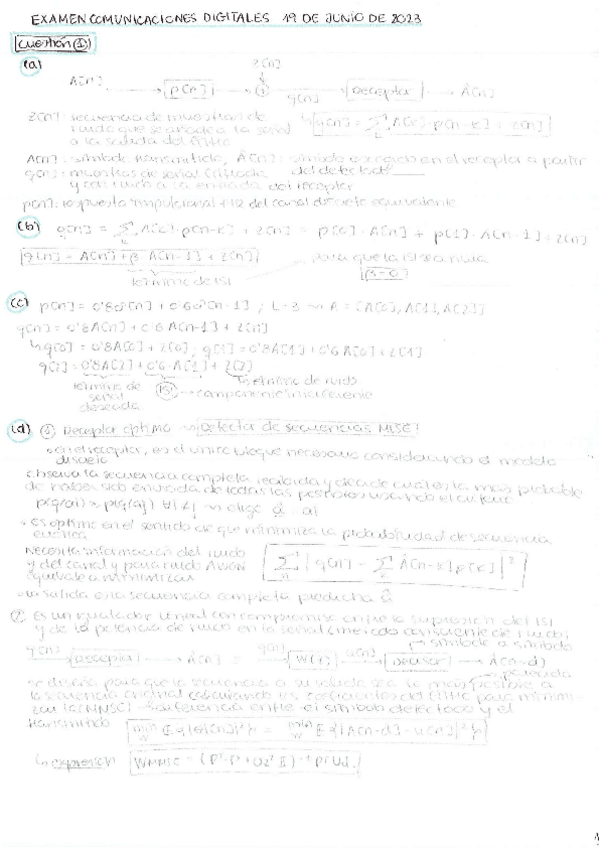 EXAMEN COMUNICACIONES DIGITALES 19 DE JUNIO DE 2023
Cuestión (1)
(a)
z[n]
A[n] → p[n] → → Receptor → Â[n]
q[n]
z[n]: secuencia de muestras de
ruido que se añade a la señal
a la salida del filtro
q[n] = Σ A[k] · p[n-k] + z[n]
A[n]: símbolo transmitido, Â[n]: símbolo en el receptor a partir
q[n]: muestras de señal filtrada del detector
y con ruido a la entrada del receptor
p[n]: respuesta impulsional del canal discreto equivalente
(b) q[n] = Σ A[k]·p[n-k] + z[n] = p[0]·A[n] + p[1]·A[n-1] + z[n]
q[n] = A[n] + β A[n-1] + z[n]
para que la ISI sea nula
término de ISI
β=0
(c) p[n] = 0'8δ[n] + 0'6δ[n-1]; L=3 A = [A[0], A[1], A[2]]
q[n] = 0'8A[n] + 0'6A[n-1] + z[n]
q[0] = 0'8A[0] + z[0]; q[1] = 0'8A[1] + 0'6A[0] + z[1]
q[2] = 0'8A[2] + 0'6·A[1] + z[2]
término de
señal
deseada
ISI
componente interferente
término de ruido
(d) ① Receptor óptimo → Detector de secuencias MLSE
en el receptor, es el único bloque necesario considerando el modelo
discreto
observa la secuencia completa recibida y decide cuál es la más probable
de haber sido enviada de todas las posibles usando el criterio
es óptimo en el sentido de que minimiza la probabilidad de secuencia
errónea
Necesita información del ruido
y del canal y para ruido AWGN
equivale a minimizar
Σ | q[n] - Σ Â[n-k] p[k] |²
la salida es la secuencia completa predicha
② Es un igualador lineal con compromiso entre la supresión del ISI
y de la potencia de ruido en la señal
símbolo a símbolo
q[n] → receptor → Â[n] = q[n] → W(z) → u[n] → decisor → Â[n-d]
se diseña para que la secuencia a su salida sea lo más posible a
la secuencia original calculando los coeficientes del filtro para minimi-
zar la (MMSE) → diferencia entre el símbolo detectado y el
transmitido
min E{|e[n]|²} = min E{|A[n-d] - u[n]|²}
expresión
1